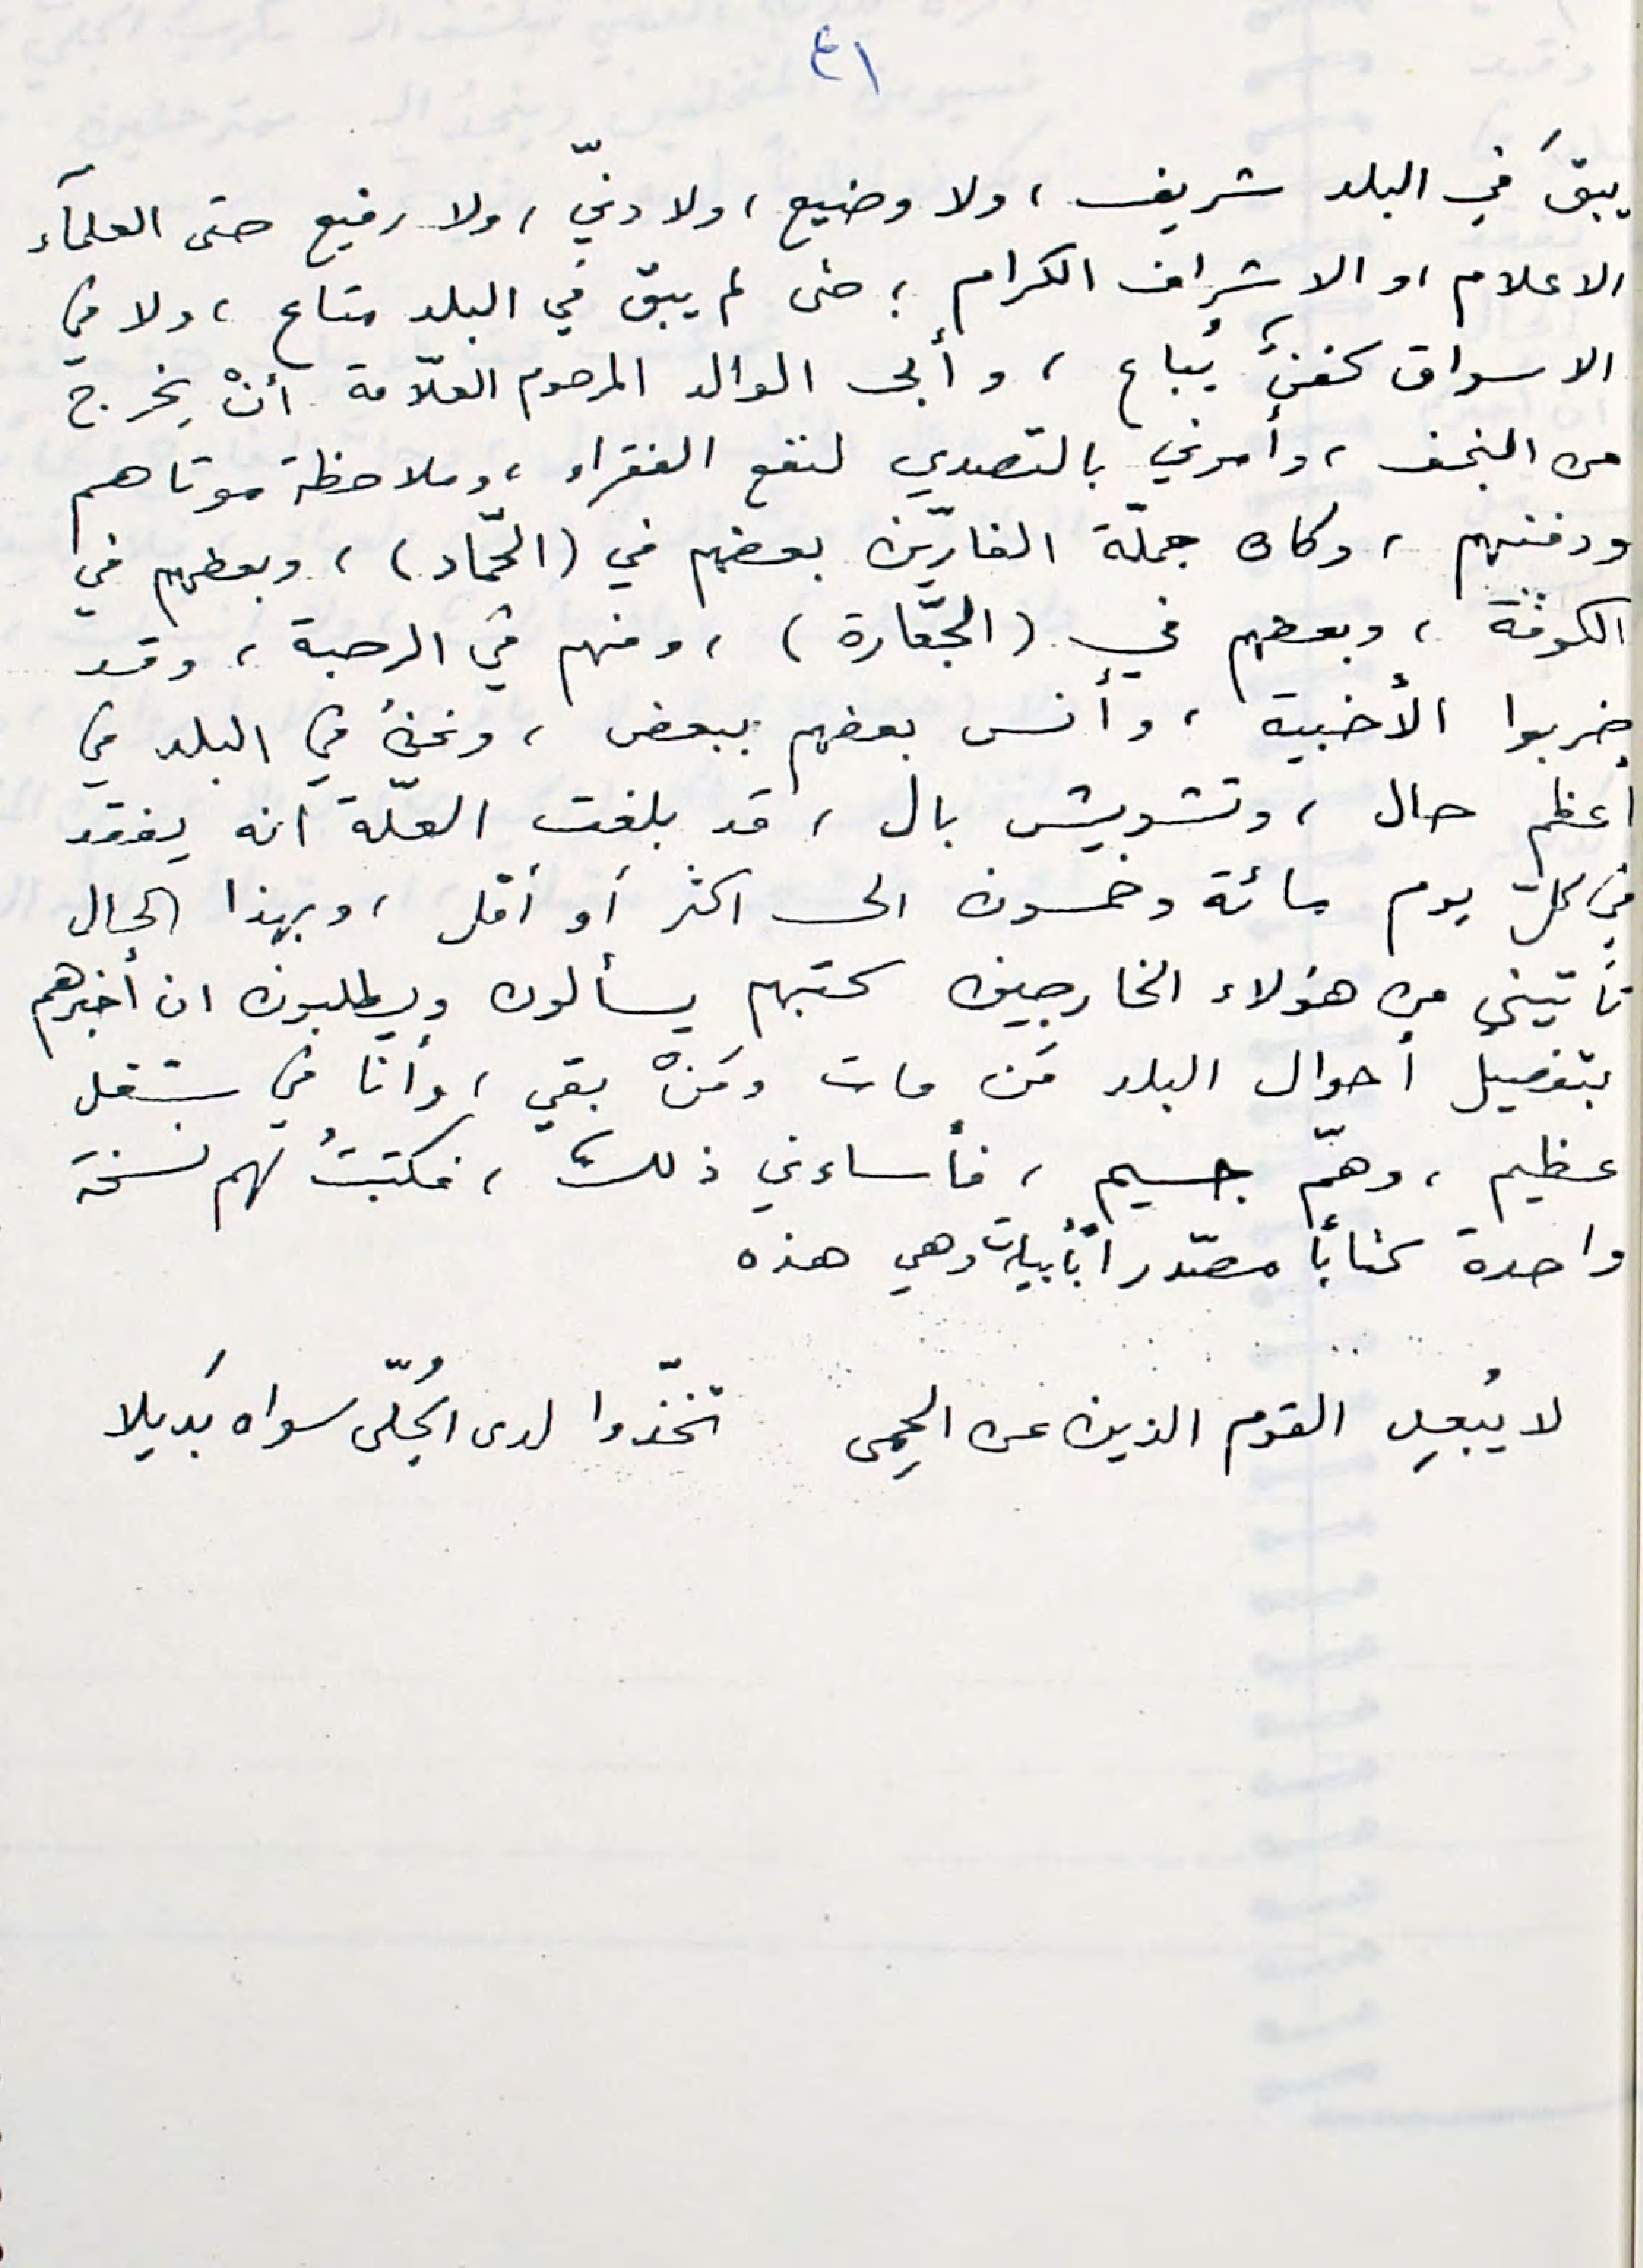 ٤١
يبقَ في البلد شريف ، ولا وضيع ، ولا دنيّ ، ولا رفيع حتى العلمآء
الاعلام ، او الاشراف الكرام ؛ حتى لم يبق في البلد متاع ، ولا في
الاسواق كفنٌ يُباع ، وأبى الوالد المرحوم العلّامة أنْ يخرج
من النجف ، وأمرني بالتصدي لنفع الفقراء ، وملاحظة موتاهم
ودفنهم ، وكان جملّة الفارّين بعضهم في (الحمّاد) ، وبعضهم في
الكوفة ، وبعضهم في (الجّعارة) ، ومنهم في الرحبة ، وقد
ضربوا الأخبية ، وأنس بعضهم ببعض ، ونحنُ في البلد في
أعظم حال ، وتشويش بال ، قد بلغت العلّة انه يفقد
في كل يوم مائة وخمسون الى اكثر أو أقل ، وبهذا الحال
تأتيني من هؤلاء الخارجين كتبهم يسألون ويطلبون ان أخبرهم
بتفصيل أحوال البلد مَن مات ومَنْ بقي ، وأنا في شغل
عظيم ، وهمّ جسيم ، فأساءني ذلك ، فكتبتُ لهم نسخة
واحدة كتاباً مصّدراً بأبيات وهي هذه
لا يُبعِدِ القوم الذين عن الحِمى تخّذوا لدى الجُلّى سواه بَديلا